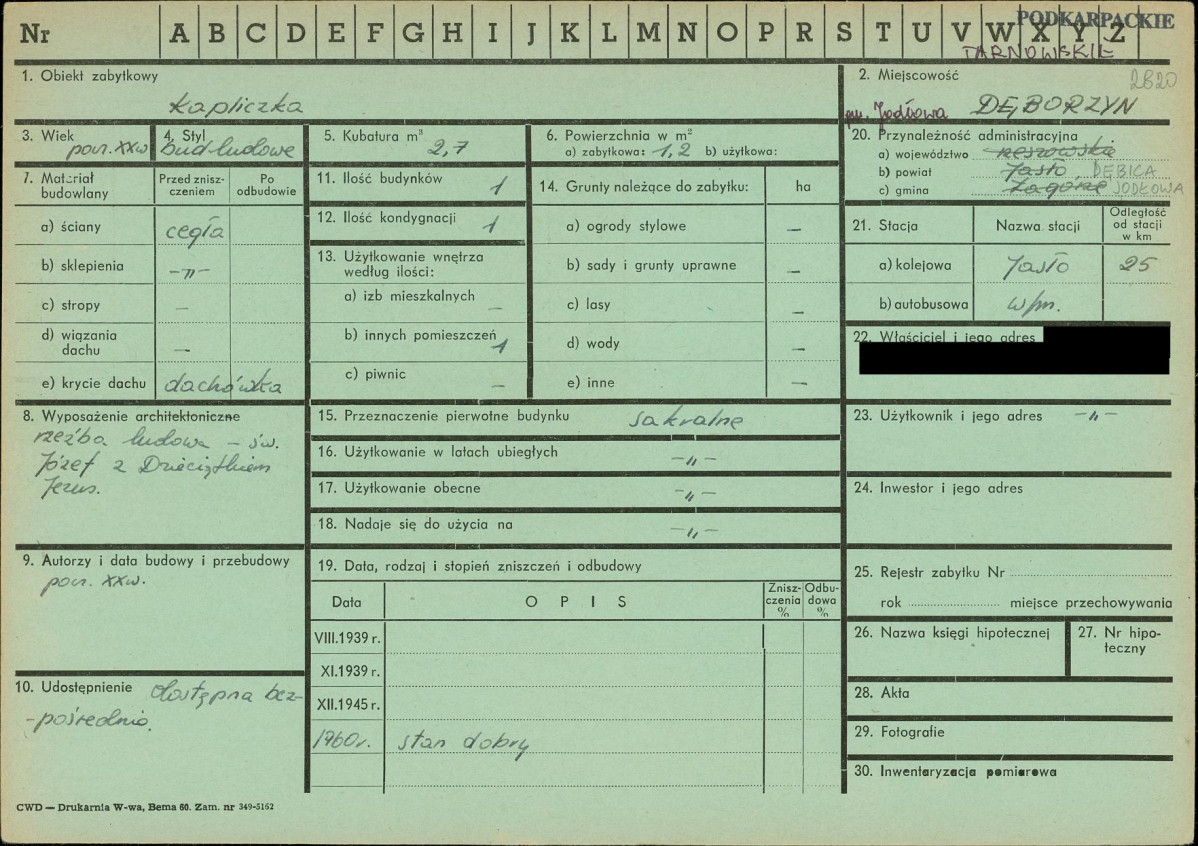 Nr A B C D E F G H I J K L M N O P R S T U V W X Y Z
PODKARPACKIE
TARNOWSKIE
1. Obiekt zabytkowy
kapliczka
2. Miejscowość
2820
gm. Jodłowa DĘBORZYN
3. Wiek
pocz. XX w
4. Styl
bud-ludowe
5. Kubatura m³
2,7
6. Powierzchnia w m²
a) zabytkowa: 1,2 b) użytkowa:
20. Przynależność administracyjna
a) województwo rzeszowskie
b) powiat Jasło DĘBICA
c) gmina Zagórze JODŁOWA
7. Materiał budowlany
Przed zniszczeniem
Po odbudowie
a) ściany cegła
b) sklepienia -"-
c) stropy –
d) wiązania dachu –
e) krycie dachu dachówka
11. Ilość budynków 1
12. Ilość kondygnacji 1
13. Użytkowanie wnętrza według ilości:
a) izb mieszkalnych –
b) innych pomieszczeń 1
c) piwnic –
14. Grunty należące do zabytku: ha
a) ogrody stylowe –
b) sady i grunty uprawne –
c) lasy –
d) wody –
e) inne –
21. Stacja Nazwa stacji Odległość od stacji w km
a) kolejowa Jasło 25
b) autobusowa w/m.
22. Właściciel i jego adres
8. Wyposażenie architektoniczne
rzeźba ludowa – św.
Józef z Dzieciątkiem
Jezus.
15. Przeznaczenie pierwotne budynku sakralne
16. Użytkowanie w latach ubiegłych -"-
17. Użytkowanie obecne -"-
18. Nadaje się do użycia na -"-
23. Użytkownik i jego adres -"-
24. Inwestor i jego adres
9. Autorzy i data budowy i przebudowy
pocz. XX w.
19. Data, rodzaj i stopień zniszczeń i odbudowy
Data OPIS Zniszczenia % Odbudowa %
VIII.1939 r.
XI.1939 r.
XII.1945 r.
1960 r. stan dobry
10. Udostępnienie dostępna bez-
-pośrednio.
25. Rejestr zabytku Nr
rok miejsce przechowywania
26. Nazwa księgi hipotecznej
27. Nr hipoteczny
28. Akta
29. Fotografie
30. Inwentaryzacja pomiarowa
CWD — Drukarnia W-wa, Bema 60. Zam. nr 349-5162